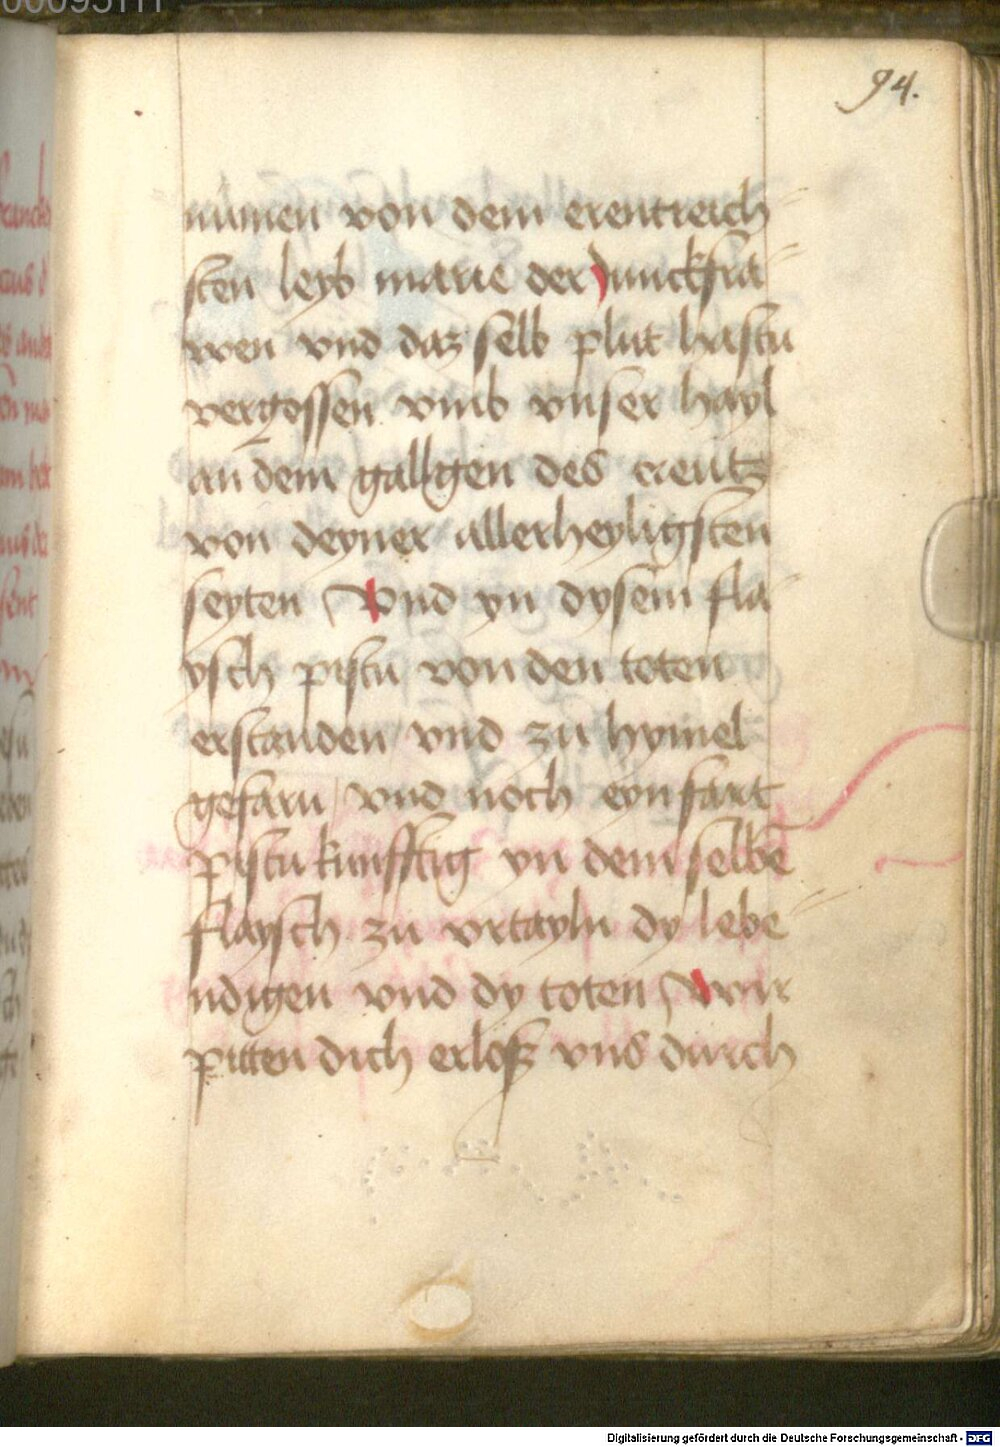 94.
numen von dem erentreich
sten leyb marie der Junckfra
wen vnd daz selb plut hastu
vergossen vmb vnser hayl
an dem gallgen des creutz
von deyner allerheyligsten
seyten Vnd yn dysem fla
ysch pistu von den toten
erstanden vnd zu hymel
gefarn vnd noch eyn fart
pistu kunfftig yn dem selbē
flaysch zu vrtayln dy lebe
ndigen vnd dy toten Wir
pitten dich erlosz vns durch
Digitalisierung gefördert durch die Deutsche Forschungsgemeinschaft - DFG